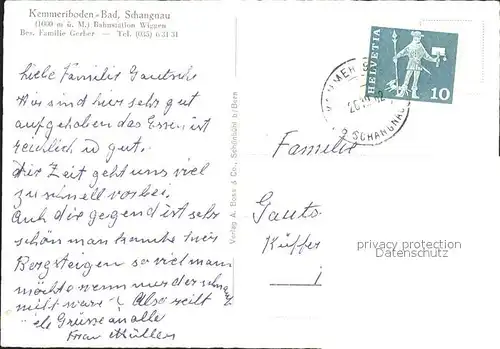 Kemmeriboden-Bad, Schangnau
(1000 m ü. M.) Bahnstation Wiggen
Bes. Familie Gerber — Tel. (035) 6 31 31
Liebe Familie Gautschi
Wir sind hier sehr gut
aufgehoben das Essen ist
reichlich u gut.
Die Zeit geht uns viel
zu schnell vorbei
Auch die gegend ist sehr
schön man kannte hier
Bergsteigen so viel man
möchte wenn nur der schnauf
nicht wäre? Also recht
viele Grüsse an alle
Frau Müller
Verlag A. Boss & Co., Schönbühl b/Bern
HELVETIA
10
SCHANGNAU
Familie
Gauts
Küffer
privacy protection
Datenschutz